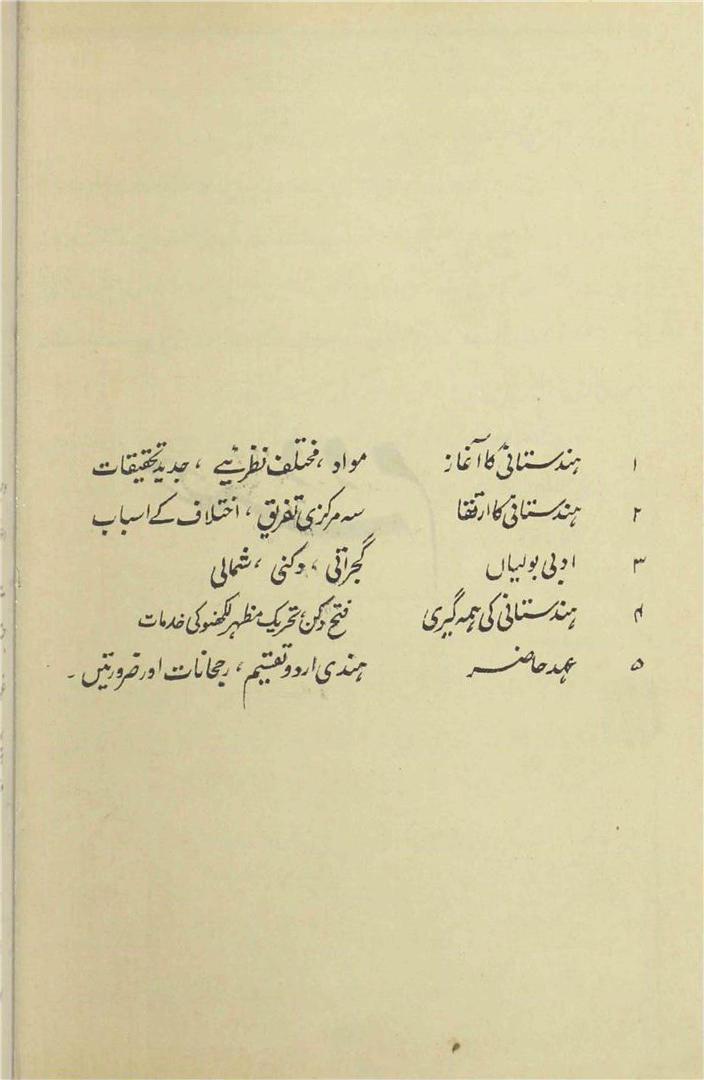 ۱ ہندستانی کا آغاز مواد ، مختلف نظریے ، جدید تحقیقات
۲ ہندستانی کا ارتقا سہ مرکزی تفریق ، اختلاف کے اسباب
۳ ادبی بولیاں گجراتی ، دکنی ، شمالی
۴ ہندستانی کی ہمہ گیری فتح دکن ، تحریک مظہر لکھنو کی خدمات
۵ عہد حاضر ہندی اردو تقسیم ، رجحانات اور ضرورتیں ۔